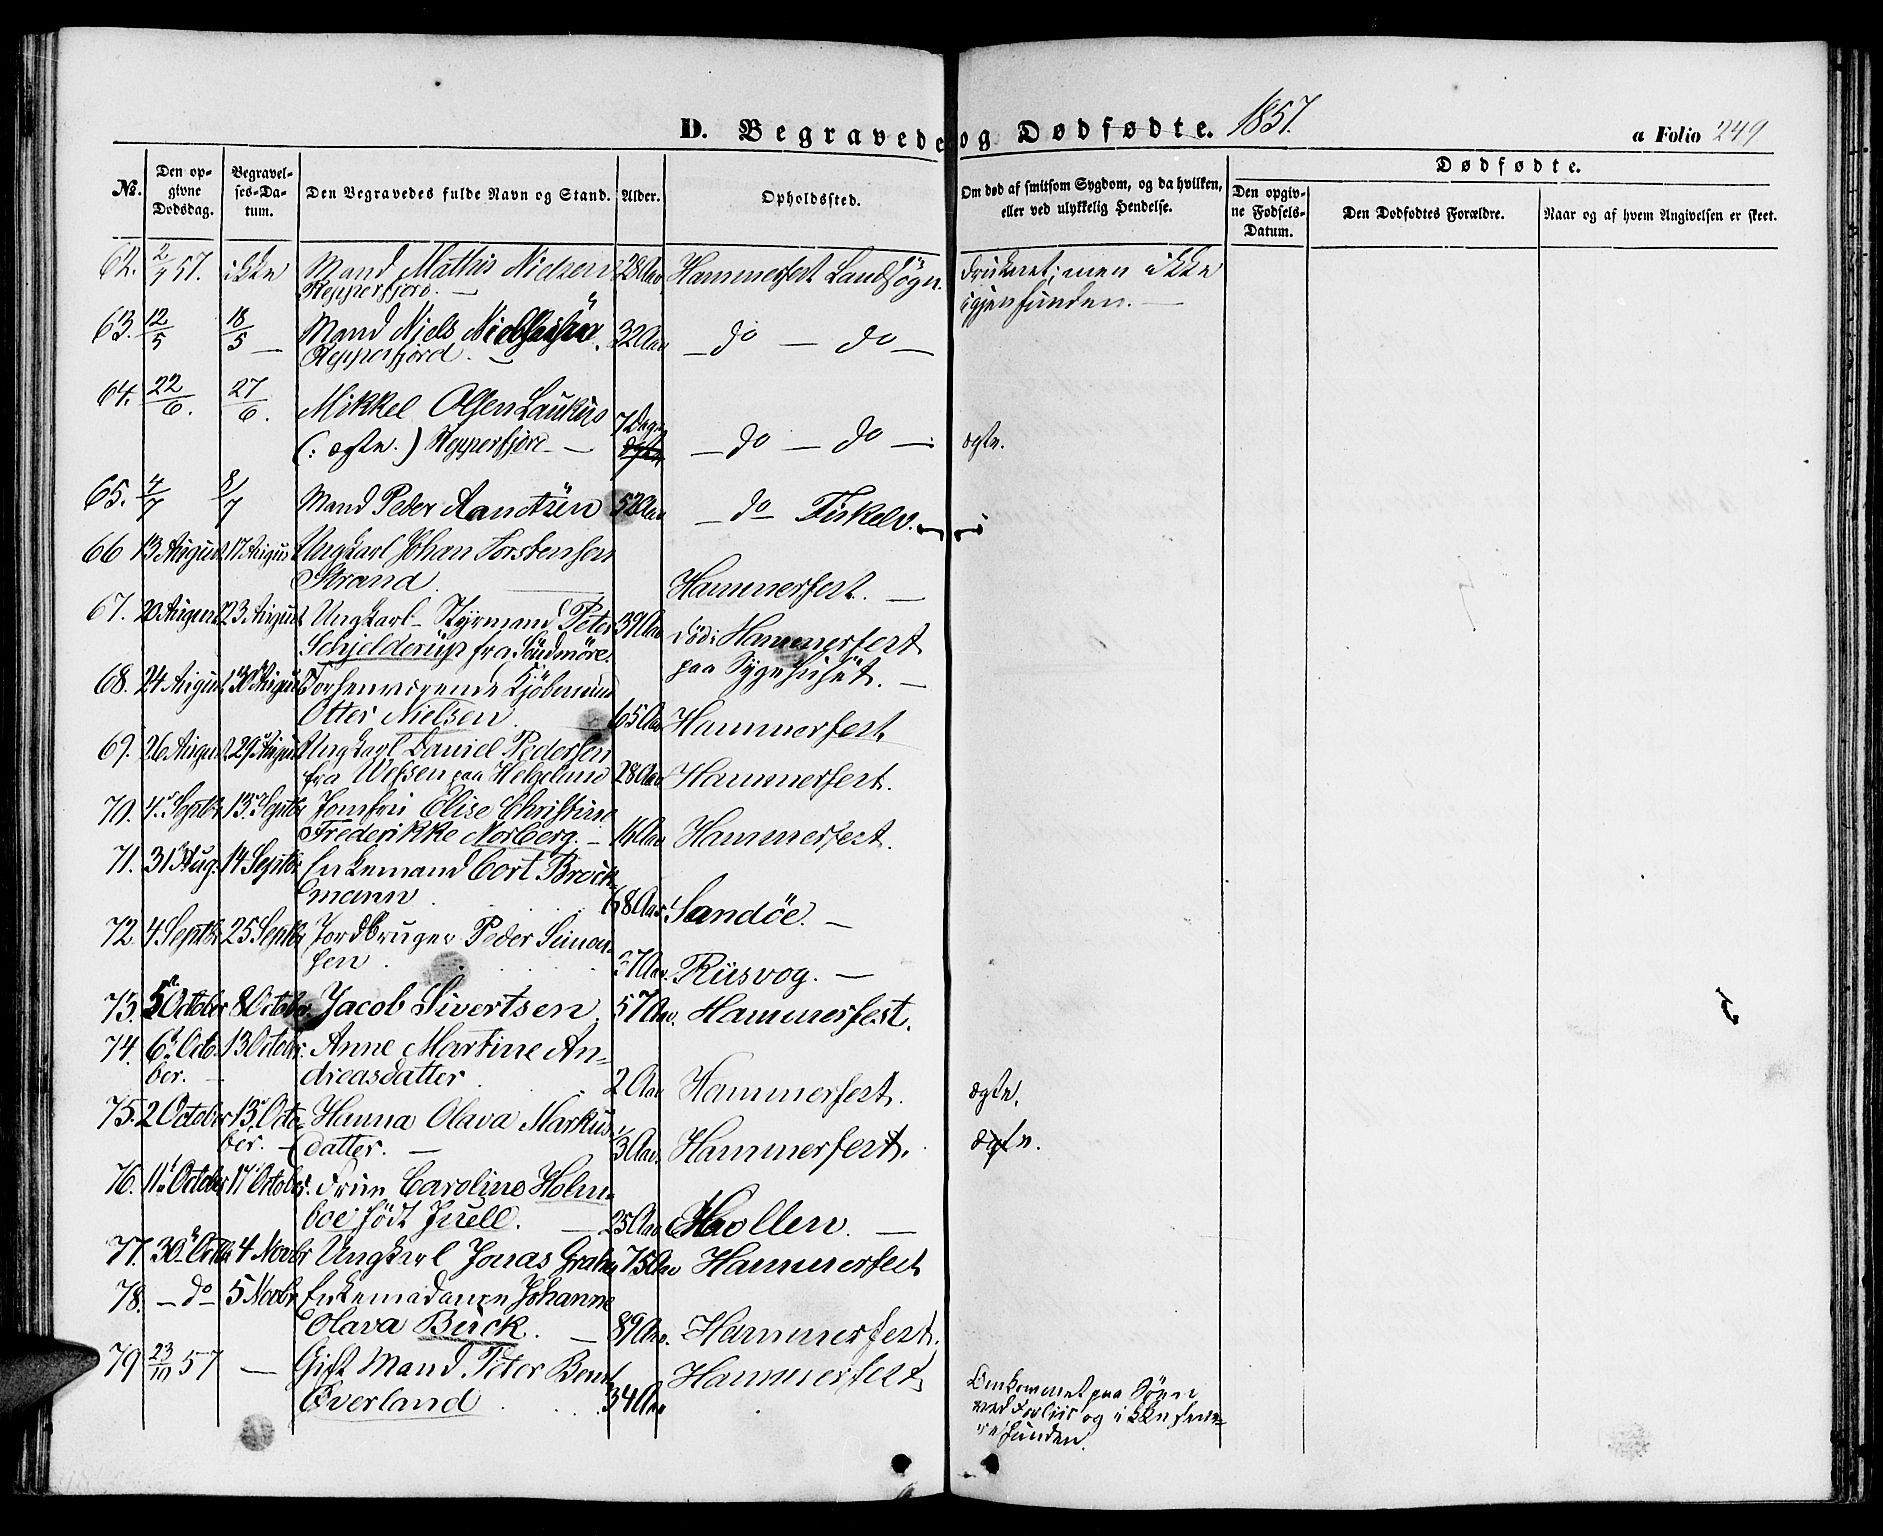 D. Begravede og Dødfødte. 1857.
a Folio 249
No. | Den opgivne Dødsdag. | Begravelses-Datum. | Den Begravedes fulde Navn og Stand. | Alder. | Opholdssted. | Om død af smitsom Sygdom, og da hvilken, eller ved ulykkelig Hendelse. | Dødfødte. | Den opgivne Fødsels-Datum. | Den Dødfødtes Forældre. | Naar og af hvem Angivelsen er skeet.
62. 57. ikke Mand Mathis Nielsen 28 Aar Hammerfest Landsogn. druknet; men ikke
Repperfjord. — igjenfunden. —
63. 12/5 18/5 — Mand Niels 32 Aar — do — do —
Repperfjord. —
64. 22/6. 27/6. Mikkel Olsen Laukus 7 Dage
(: ægte.) Repperfjord — — do — do — ægte.
65. 4/7 8/7 Mand Peder 52 Aar — do — Fiskelv.
66 13 August 17 August Ungkarl Johan Torstensen
Strand. Hammerfest. —
67. 20 August 23 August Ungkarl - Styrmand Peter 39 Aar død: Hammerfest
Schjelderup fra Söndmöre. paa Sygehuset. —
68. 24 August 30 August Forhenværende Kjöbmand
Otter Nielsen. 65 Aar Hammerfest.
69. 26 August. 29 August Ungkarl Daniel Pedersen
fra Wefsen paa Helgeland 28 Aar Hammerfest.
70. 4 Septbr 13 Septbr Jomfru Elise Christine
Frederikke Norberg. — 16 Aar Hammerfest.
71. 31 Aug. 14 Septbr Enkemand Cort Brock
mann. 68 Aar. Sandöe. —
72. 4 Septbr 25 Septbr Jordbruger Peder Simon
sen. 27 Aar. —
73. 5 October 8 October Jacob Sivertsen. 57 Aar. Hammerfest.
74. 6 Octo 13 Octobr. Anne Martine An-
ber. — dreasdatter. 2 Aar Hammerfest. ægte.
75. 2 October 13 Octo- Hanna Olava Markus
ber. — datter. — Aar. Hammerfest. ægte.
76. 11 October 17 October. Frue Caroline Holm
boe födt Juell. — 25 Aar —
77. 30 Octbr 4 Novbr Ungkarl Jonas 75 Aar Hammerfest
78. — do — 5 Novbr Enkemadamen Johanne
Olava Buck. — 89 Aar. Hammerfest.
79 23/10 57 — Gift Mand. Peter Hammerfest
Överland. 34 Aar Omkommet paa Söen
ved Forliis og ikke sene-
re funden.